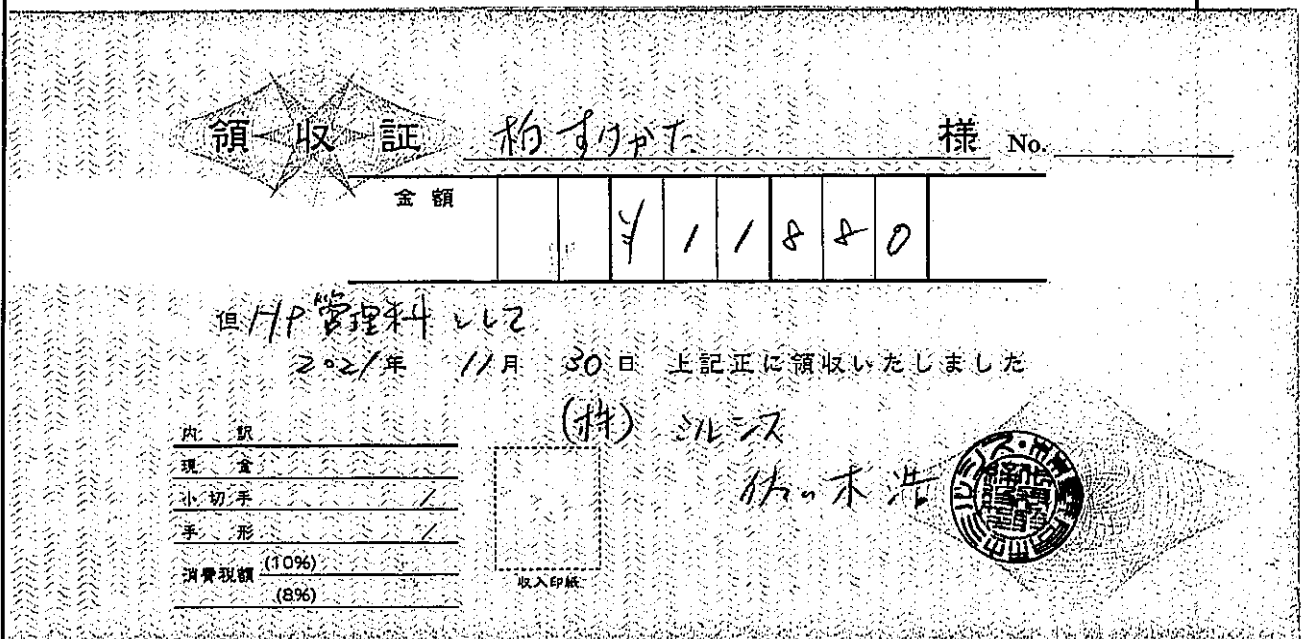 領収証 柏すりかた 様 No.
金額 ¥11880
但 HP管理料として
2021年 11月 30日 上記正に領収いたしました
(株) シルシス
佐々木 浩
内訳
現金
小切手 /
手形 /
消費税額 (10%)
(8%)
収入印紙